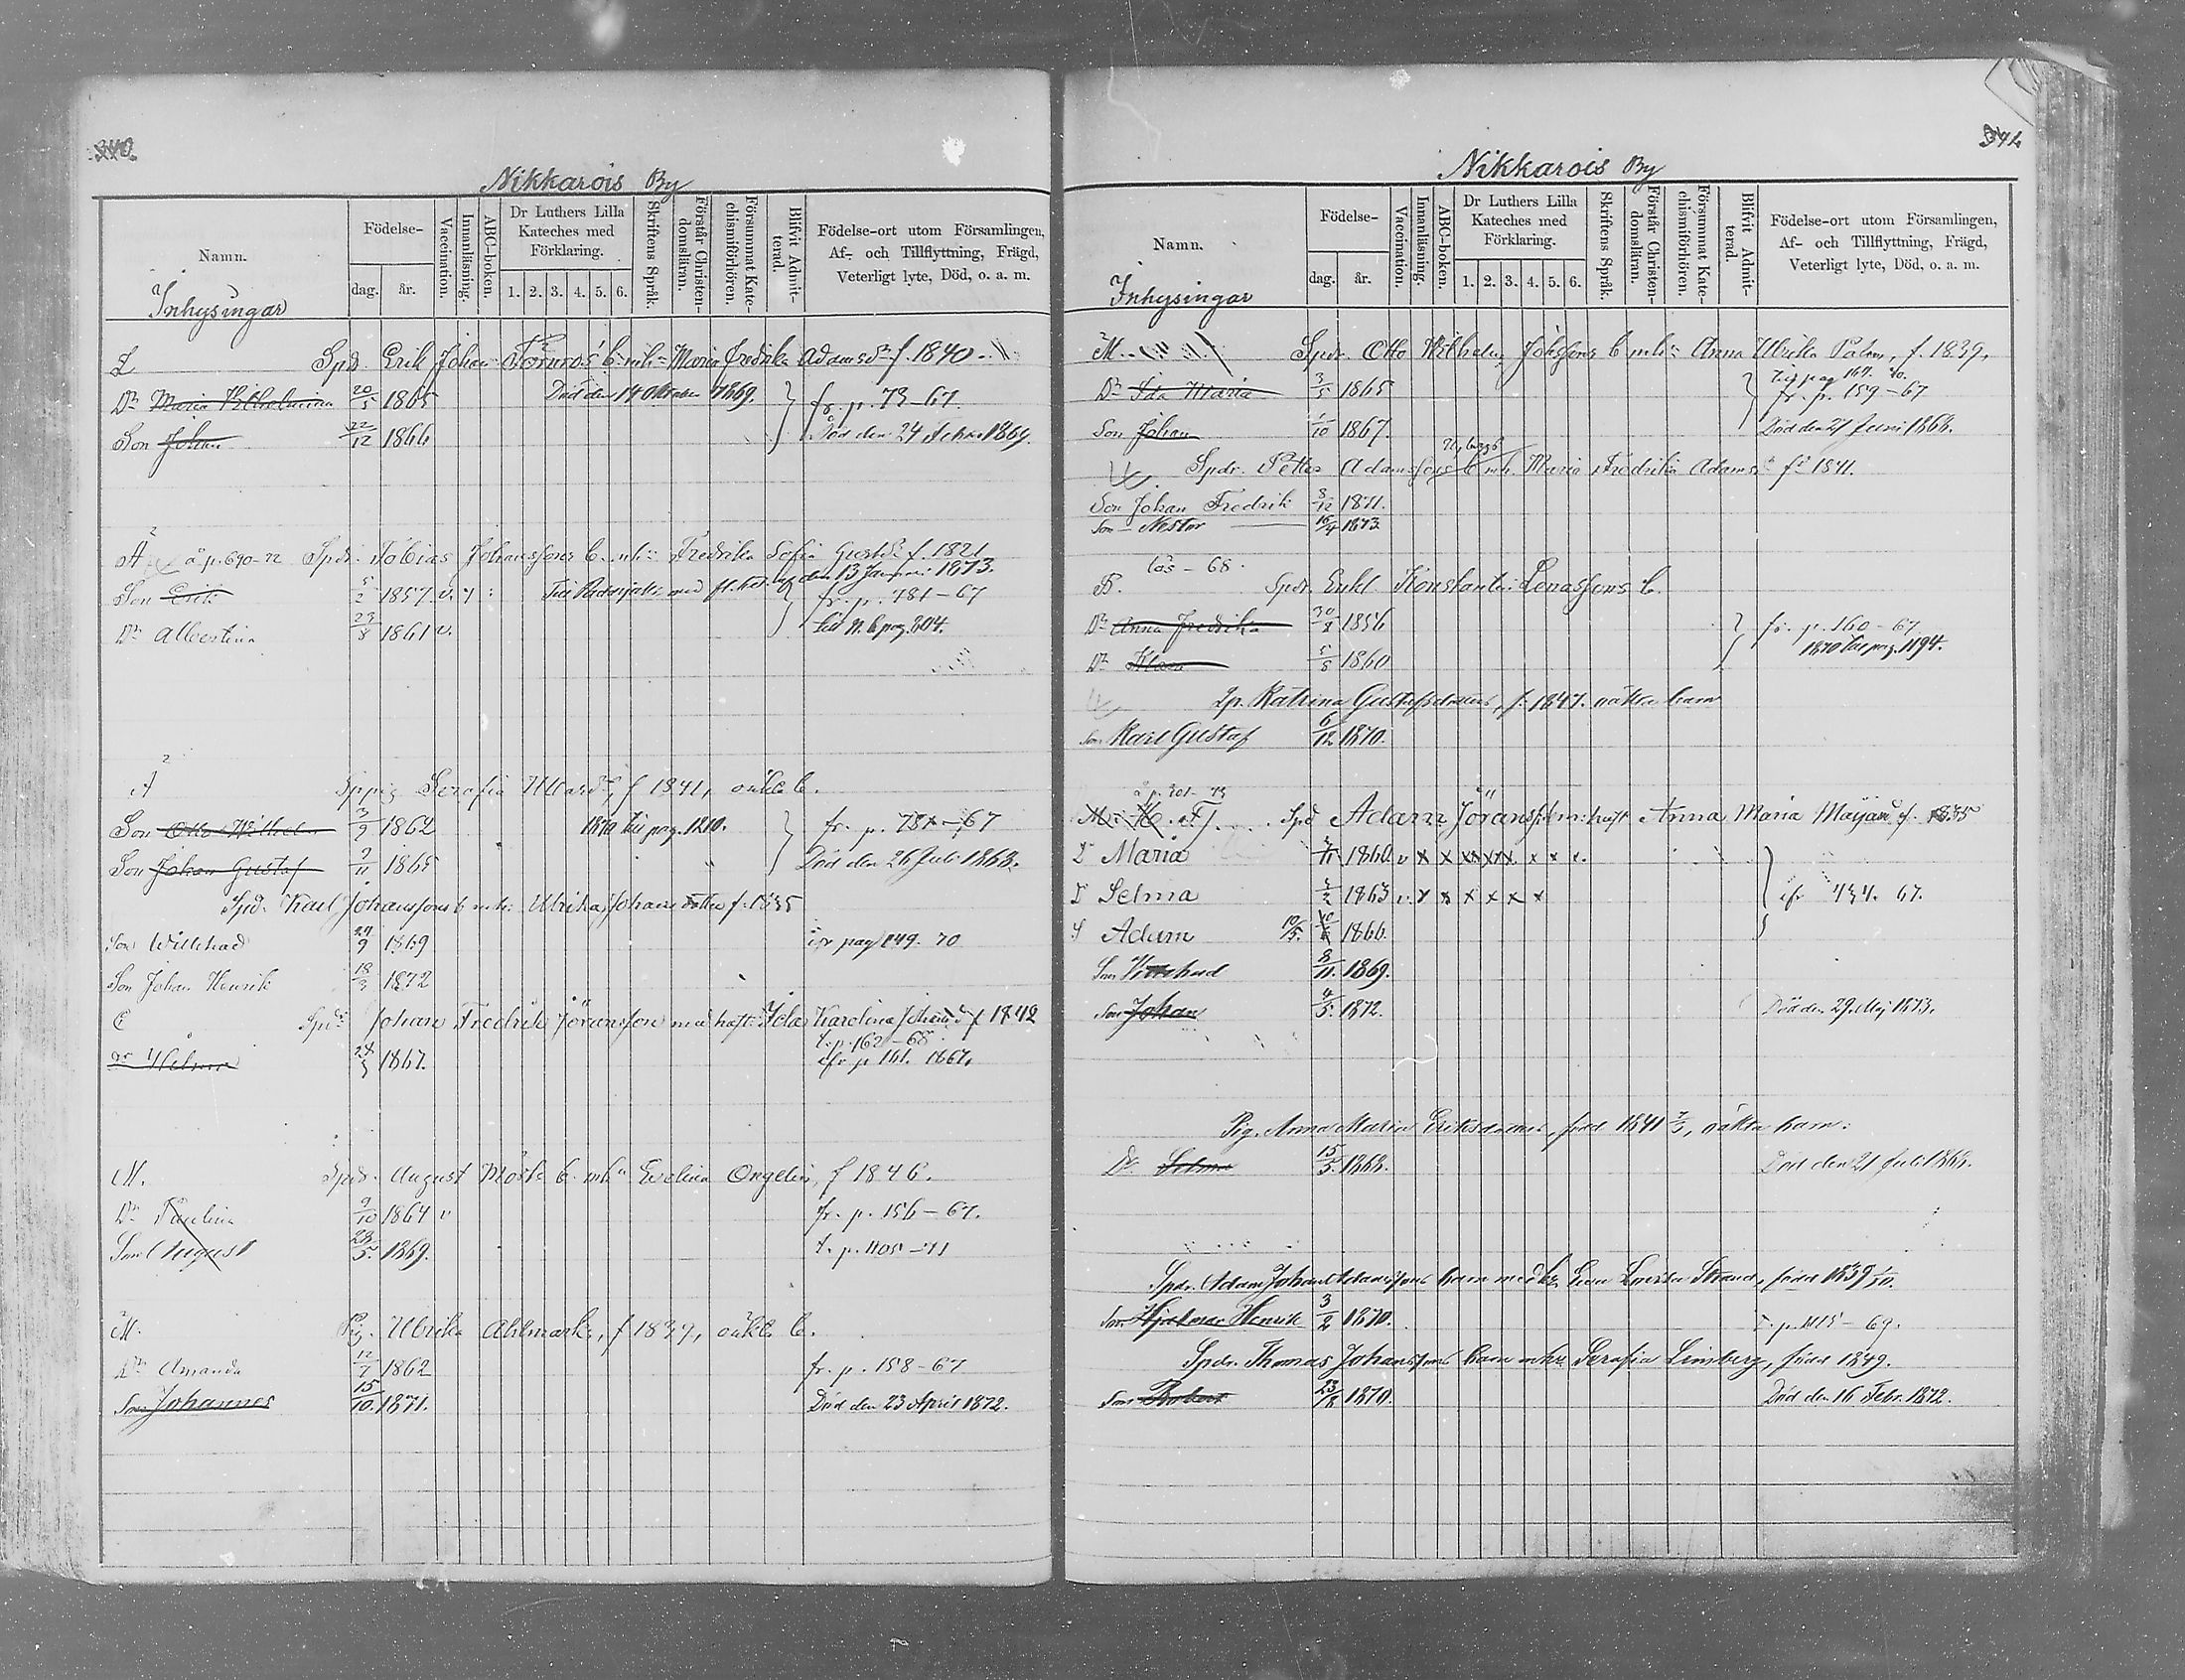 340.
Nikkarois By
Namn.
Födelse-
dag.
år.
Vaccination.
Innanläsning.
ABC-boken.
Dr Luthers Lilla
Kateches med
Förklaring.
1. 2. 3. 4. 5. 6.
Skriftens Språk.
Förstår Christen-
domsläran.
Försummat Kate-
chismiförhören.
Blifvit Admit-
terad.
Födelse-ort utom Församlingen,
Af- och Tillflyttning, Frägd,
Veterligt lyte, Död, o. a. m.
Inhysingar
L Spdr. Erik Johan Tornros' b. mh: Maria Fredrika Adamsdr f. 1840.
Dr Maria Vilhelmina 20/5 1865 Död den 14 Oktober 1869. fr. p. 73-67.
Son Johan 22/12 1866 Död den 24 1869.
A å p. 690-72 Spdr. Tobias Johanssons b. mh: Fredrika Sofia Gustdr f. 1821
Son Erik 5/2 1857 v. den 13 Januari 1873. fr. p. 781-67
Dr Albertina 23/8 1861 v. pag. 304.
A Serafia f 1841, oäkta b.
Son Otto Wilhelm 3/9 1862 1870 till pag. 1210. fr. p. 781-67
Son Johan Gustaf 9/11 1865 Död den 26 Juli 1868.
Spdr. Karl Johanssons b mh: Ulrika Johans dotter f. 1835
Son Willehad 24/9 1869 ifr pag 149. 70
Son Johan Henrik 18/3 1872
C Spdr Johan Fredrik Göransson med haft: Ida Karolina f 1842
t. p. 162-68
dr Helena 1867. ifr p 161. 1867.
M. Spdr. August Mörk b. mh: Evelina Ongelin, f 1846.
Dr Paulina 9/10 1864 v fr. p. 156-67.
Son August 28/5. 1869. t. p. 1105-71
M. Pig. Ulrika Ahlmark, f 1839, oäkta b.
Dr Amanda 12/7 1862 fr. p. 158-67
Son Johannes 15/10. 1871. Död den 23 April 1872.
341
Nikkarois By
Namn.
Födelse-
dag.
år.
Vaccination.
Innanläsning.
ABC-boken.
Dr Luthers Lilla
Kateches med
Förklaring.
1. 2. 3. 4. 5. 6.
Skriftens Språk.
Förstår Christen-
domsläran.
Försummat Kate-
chismiförhören.
Blifvit Admit-
terad.
Födelse-ort utom Församlingen,
Af- och Tillflyttning, Frägd,
Veterligt lyte, Död, o. a. m.
Inhysingar
M. Spdr. Otto Wilhelm b mh: Anna Ulrika Palm, f. 1839.
Till pag 167. 70.
Dr Ida Maria 3/5 1865 fr. p. 159-67
Son Johan 1/10 1867. Död den 21 Juni 1868.
Spdr. Petter Adamssons b mh. Maria Fredrika Adamsdr fd 1841.
Son Johan Fredrik 8/12 1871.
Son Nestor 16/4 1873
lös - 68.
B. Spdr. Enkl. Konstantin Lenassons b.
Dr Anna Fredrika 30/8 1856 fr. p. 160-67
Dr Klara 1860 1870 till pag. 1194.
Ip. Katrina Gustafsdotters, f. 1847. oäkta barn
Son Karl Gustaf 6/12 1870.
å p. 301-73
Spd Adam Göransson m: haft Anna Maria f. 1835
D Maria 1860 v x x x x x x x x
D Selma 1863 v. x x x x x x ifr 434. 67.
S Adam 10/5. 1866.
Son 8/11. 1869.
Son Johan 4/5. 1872. Död den 29. Maj 1873.
Pig. Anna Maria Eriksdotters, född 1841, oäkta barn:
Dr. Selma 15/5. 1868. Död den 21 Juli 1868.
Spdr. Adam Johan Adamssons barn med h. Eva Lovisa Strand, född 1839.
Son Hjalmar Henrik 3/2 1870. t. p. 1115-69.
Spdr. Thomas Johanssons barn mhu Serafia Limberg, född 1849.
Son Robert 23/8 1870. Död den 16 Febr. 1872.